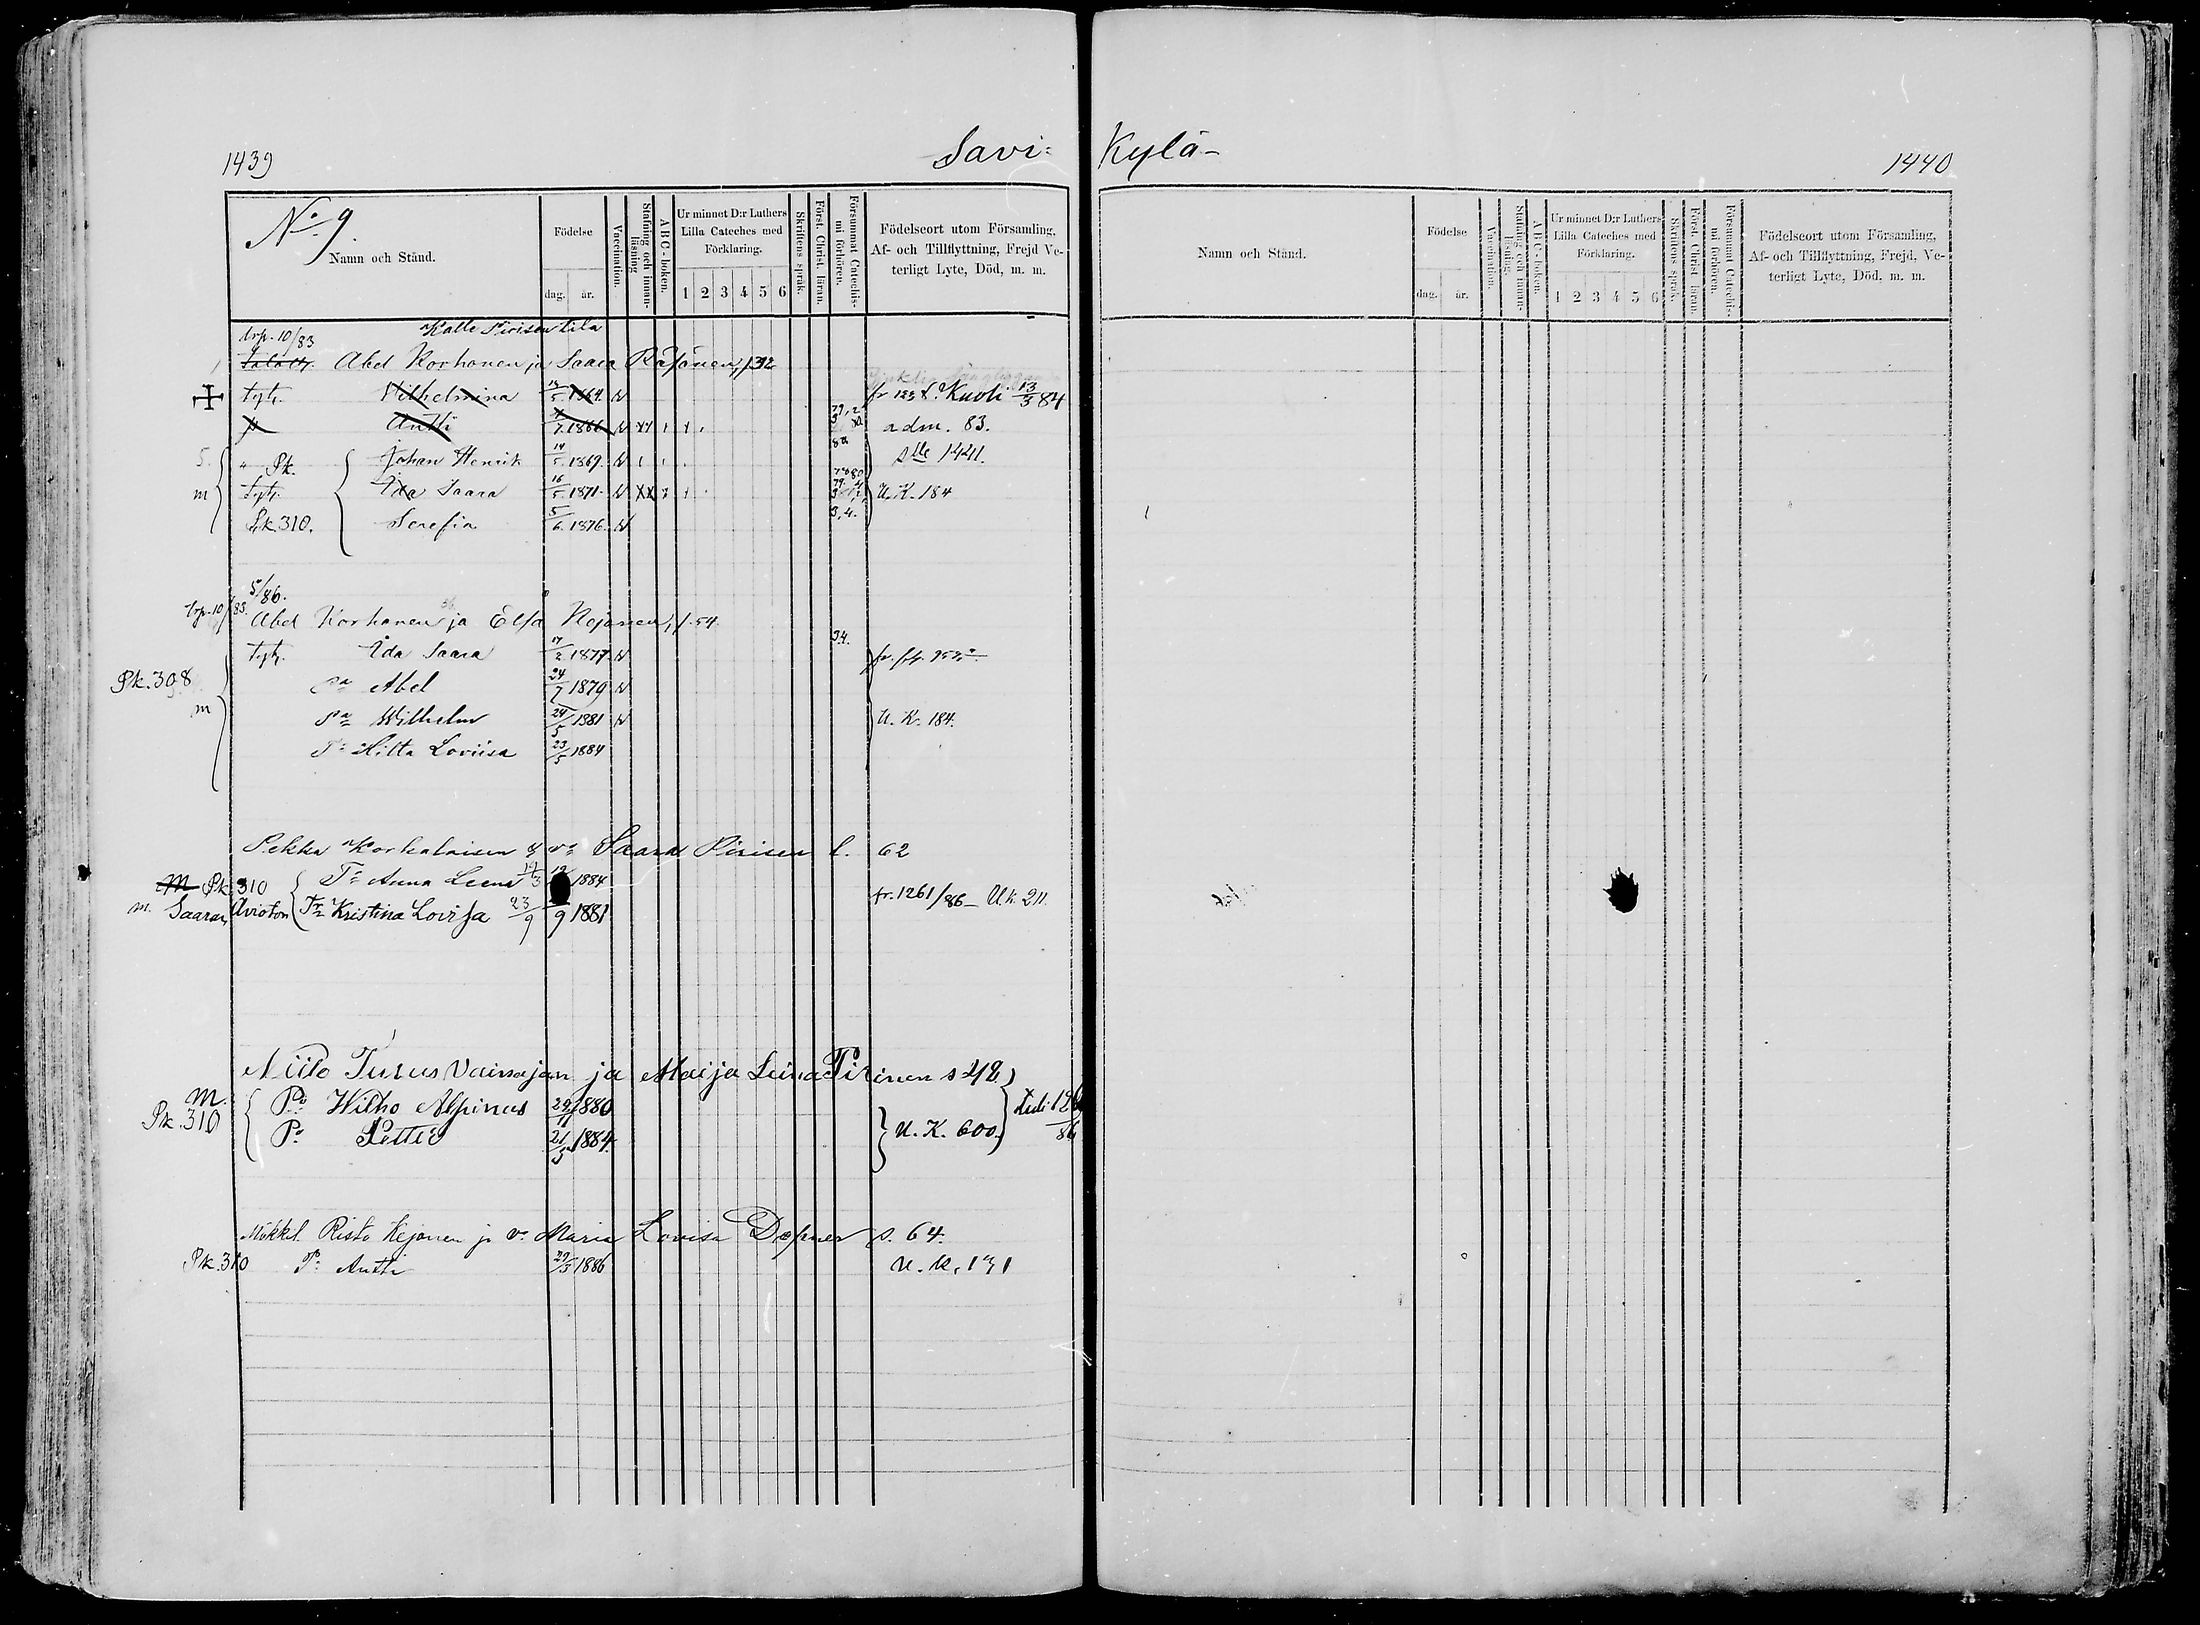 1439
Savi= Kylä-
1440
No 9.
Namn och Stånd.
Födelse
dag. år.
Vaccination.
Stafning och innan-läsning
A B C-boken.
Ur minnet D:r Luthers Lilla Cateches med Förklaring.
1 2 3 4 5 6
Skriftens språk.
Först. Christ. läran.
Försummat Catechis-mi förhören.
Födelseort utom Församling, Af- och Tillflyttning, Frejd Veterligt Lyte, Död, m. m.
Namn och Stånd.
Födelse
dag. år.
Vaccination.
Stafning och innan-läsning.
A B C-boken.
Ur minnet D:r Luthers Lilla Cateches med Förklaring.
1 2 3 4 5 6
Skriftens språk.
Först. Christ läran.
Försummat Catechis-mi förhören.
Födelseort utom Församling, Af- och Tillflyttning, Frejd, Veterligt Lyte, Död, m. m.
trp. 10/83 Kalle Piirisen tila
Abel Korhonen ja Saara Räsänen, 32
tytr. Wilhelmina 5. 1864. Kuoli 13/3 84
Antti 7. 1866 adm. 83.
Pk. Johan Henrik 14/5. 1869. slle 1421.
m tytr. Ida Saara 16/5. 1871. U. K. 184
Pk. 310. Serefia 5/6. 1876. 3,4.
5/86.
trp. 10/83. Abel Korhonen ja Elsa Kejonen, 54.
tytr. Ida Saara 17/2. 1877 34.
Pk. 308 Pa Abel 24/7 1879
m Pa Wilhelm 24/5 1881 U. K. 184.
T: Hilta Loviisa 23/5 1884
Pekka Korhalaisen Saara Piirisen l. 62
M Pk. 310 Tr Anna Leena 1884
m. Saaran Avioton Tr Kristina Lovisa 23/9 9 1881 fr. 1261/86 - Uk. 211.
Niilo Turus Vainajan ja Maija Liina Pirinen s 48
M. Po Wilho Alpinus 29/11 1880
Pk. 310 Po Petter 21/5 1884. U. K. 600.
Mökkil. Risto Kejonen ja v: Maria Lovisa Depner s. 64.
Pk. 310 P: Antti 29/3 1886 U. K. 171